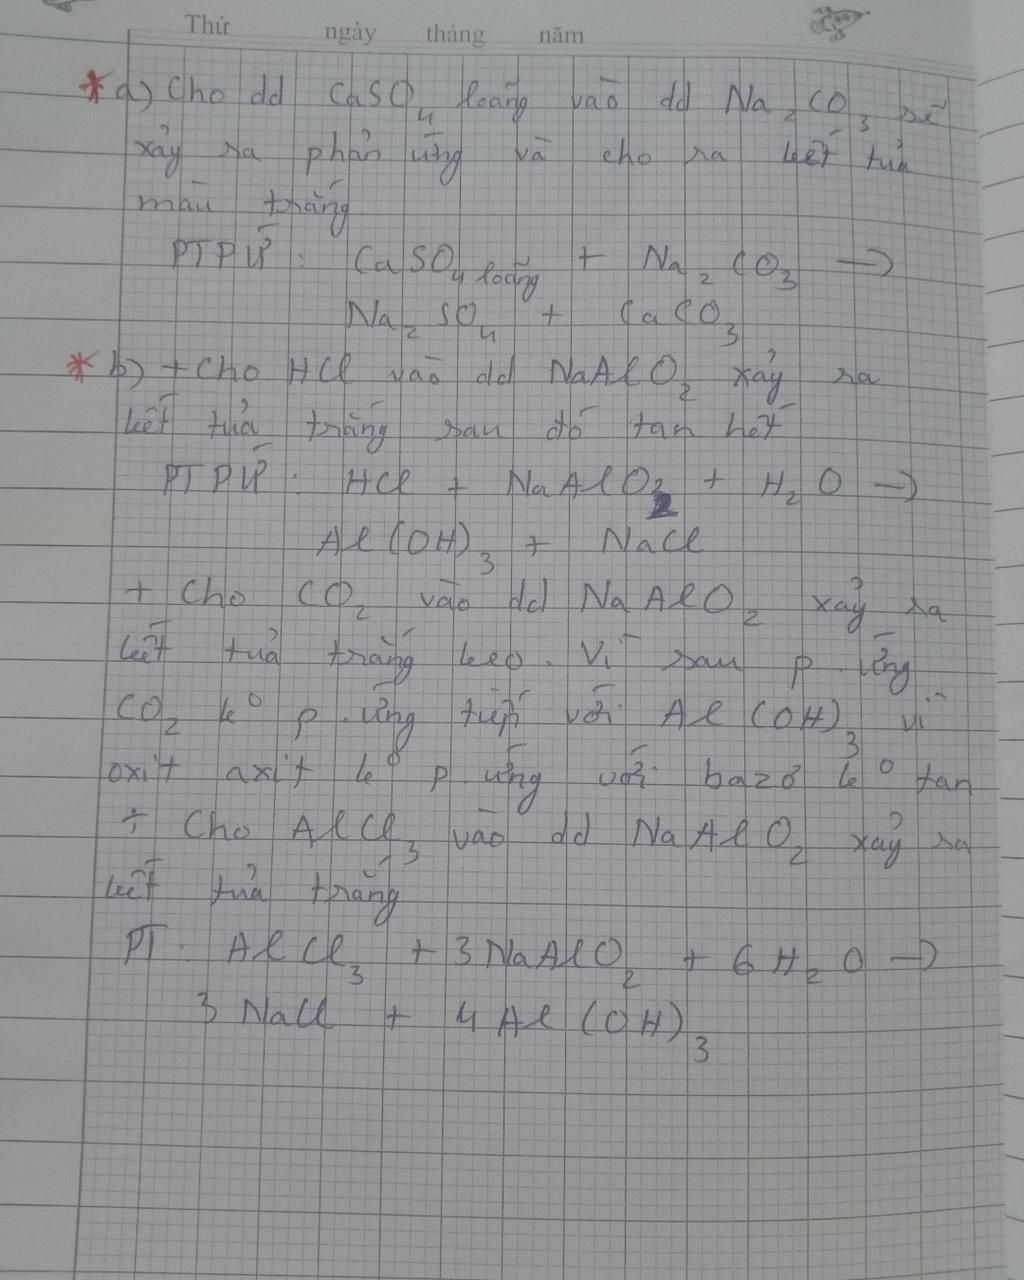 Thứ ngày tháng năm
* a) Cho dd CaSO₄ loãng vào dd Na₂CO₃ sẽ
xảy ra phản ứng và cho ra kết tủa
màu trắng
PTPƯ : CaSO₄ loãng + Na₂CO₃ →
Na₂SO₄ + CaCO₃
* b) + Cho HCl vào dd NaAlO₂ xảy ra
kết tủa trắng sau đó tan hết
PTPƯ : HCl + NaAlO₂ + H₂O →
Al(OH)₃ + NaCl
+ Cho CO₂ vào dd NaAlO₂ xảy ra
kết tủa trắng keo. Vì sau p.ứng
CO₂ k⁰ p.ứng tiếp với Al(OH)₃ vì
oxit axit k⁰ p.ứng với bazơ k⁰ tan
+ Cho AlCl₃ vào dd NaAlO₂ xảy ra
kết tủa trắng
PT : AlCl₃ + 3NaAlO₂ + 6H₂O →
3NaCl + 4Al(OH)₃